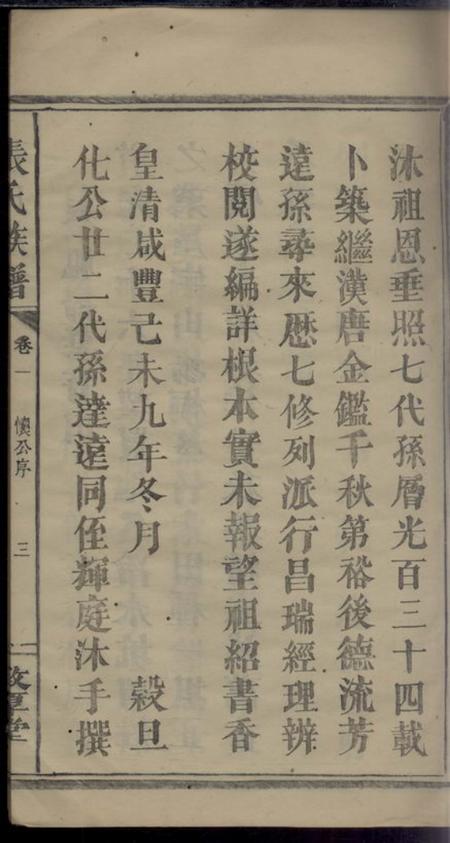 沐祖恩垂照七代孫厝光百三十四載
卜築繼漢唐金鑑千秋第裕後德流芳
遠孫尋來歷七修列派行昌瑞經理辨
校閱遂編詳根本實未報望祖紹書香
皇清咸豐己未九年冬月 穀旦
化公廿二代孫達遠同侄輝庭沐手撰
張氏族譜 卷一 懷公序 三 敦厚堂